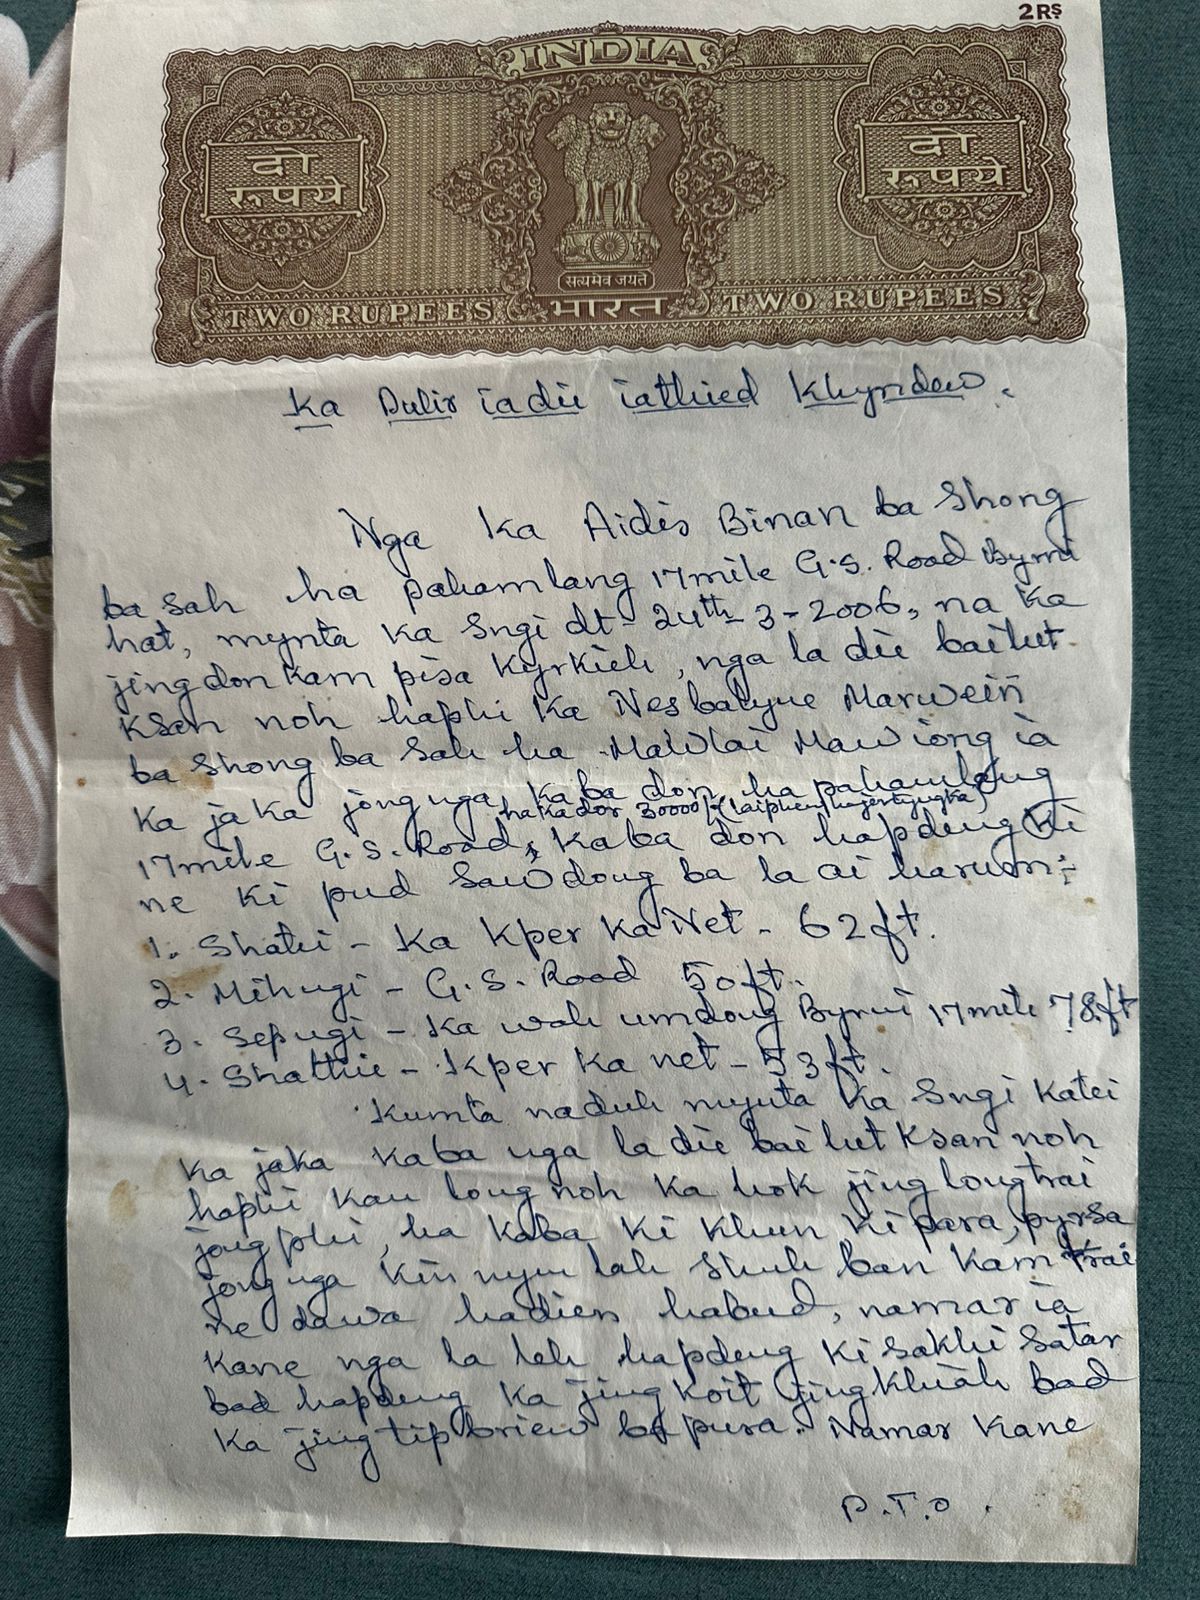 2RS.
INDIA
दो रूपये
दो रूपये
सत्यमेव जयते
TWO RUPEES भारत TWO RUPEES
Ka Dulir iadie iathied Khyndew.
Nga Ka Aidis Binan ba Shong
ba sah ha pahamlang 17mile G.S. Road Byrni
hat, mynta ka Sngi dt - 24th - 3 - 2006, na ka
jingdonkam pisa kyrkieh, nga la die bailut
ksan noh haphi ka Nesbalyne Marwein
ba Shong ba Sah ha Mawlai Mawiong ia
ka jaka jong nga kaba don ha pahamlang
hakador 30000/- (laiphew hajar tyngka)
17mile G.S. Road, kaba don hapdeng ki
ne ki pud sawdong ba la ai harum :-
1. Shathi - Ka Kper Ka Net - 62ft.
2. Mihngi - G.S. Road 50ft.
3. Sepngi - Ka wah umdong Byrni 17mile 78ft
4. Shathie - Kper Ka net - 53ft.
Kumta naduh mynta ka Sngi katei
ka jaka kaba nga la die bailut Ksan noh
haphi kan long noh ka hok jinglongtrai
jong phi, ha kaba ki khun ki para, pyrsa
jong nga kin nym lah shuh ban kam trai
ne dawa hadien habud, namar ia
kane nga la leh hapdeng ki sakhi satar
bad hapdeng ka jingkoit jingkhiah bad
ka jingtipbriew ba pura. Namar kane
P.T.O.